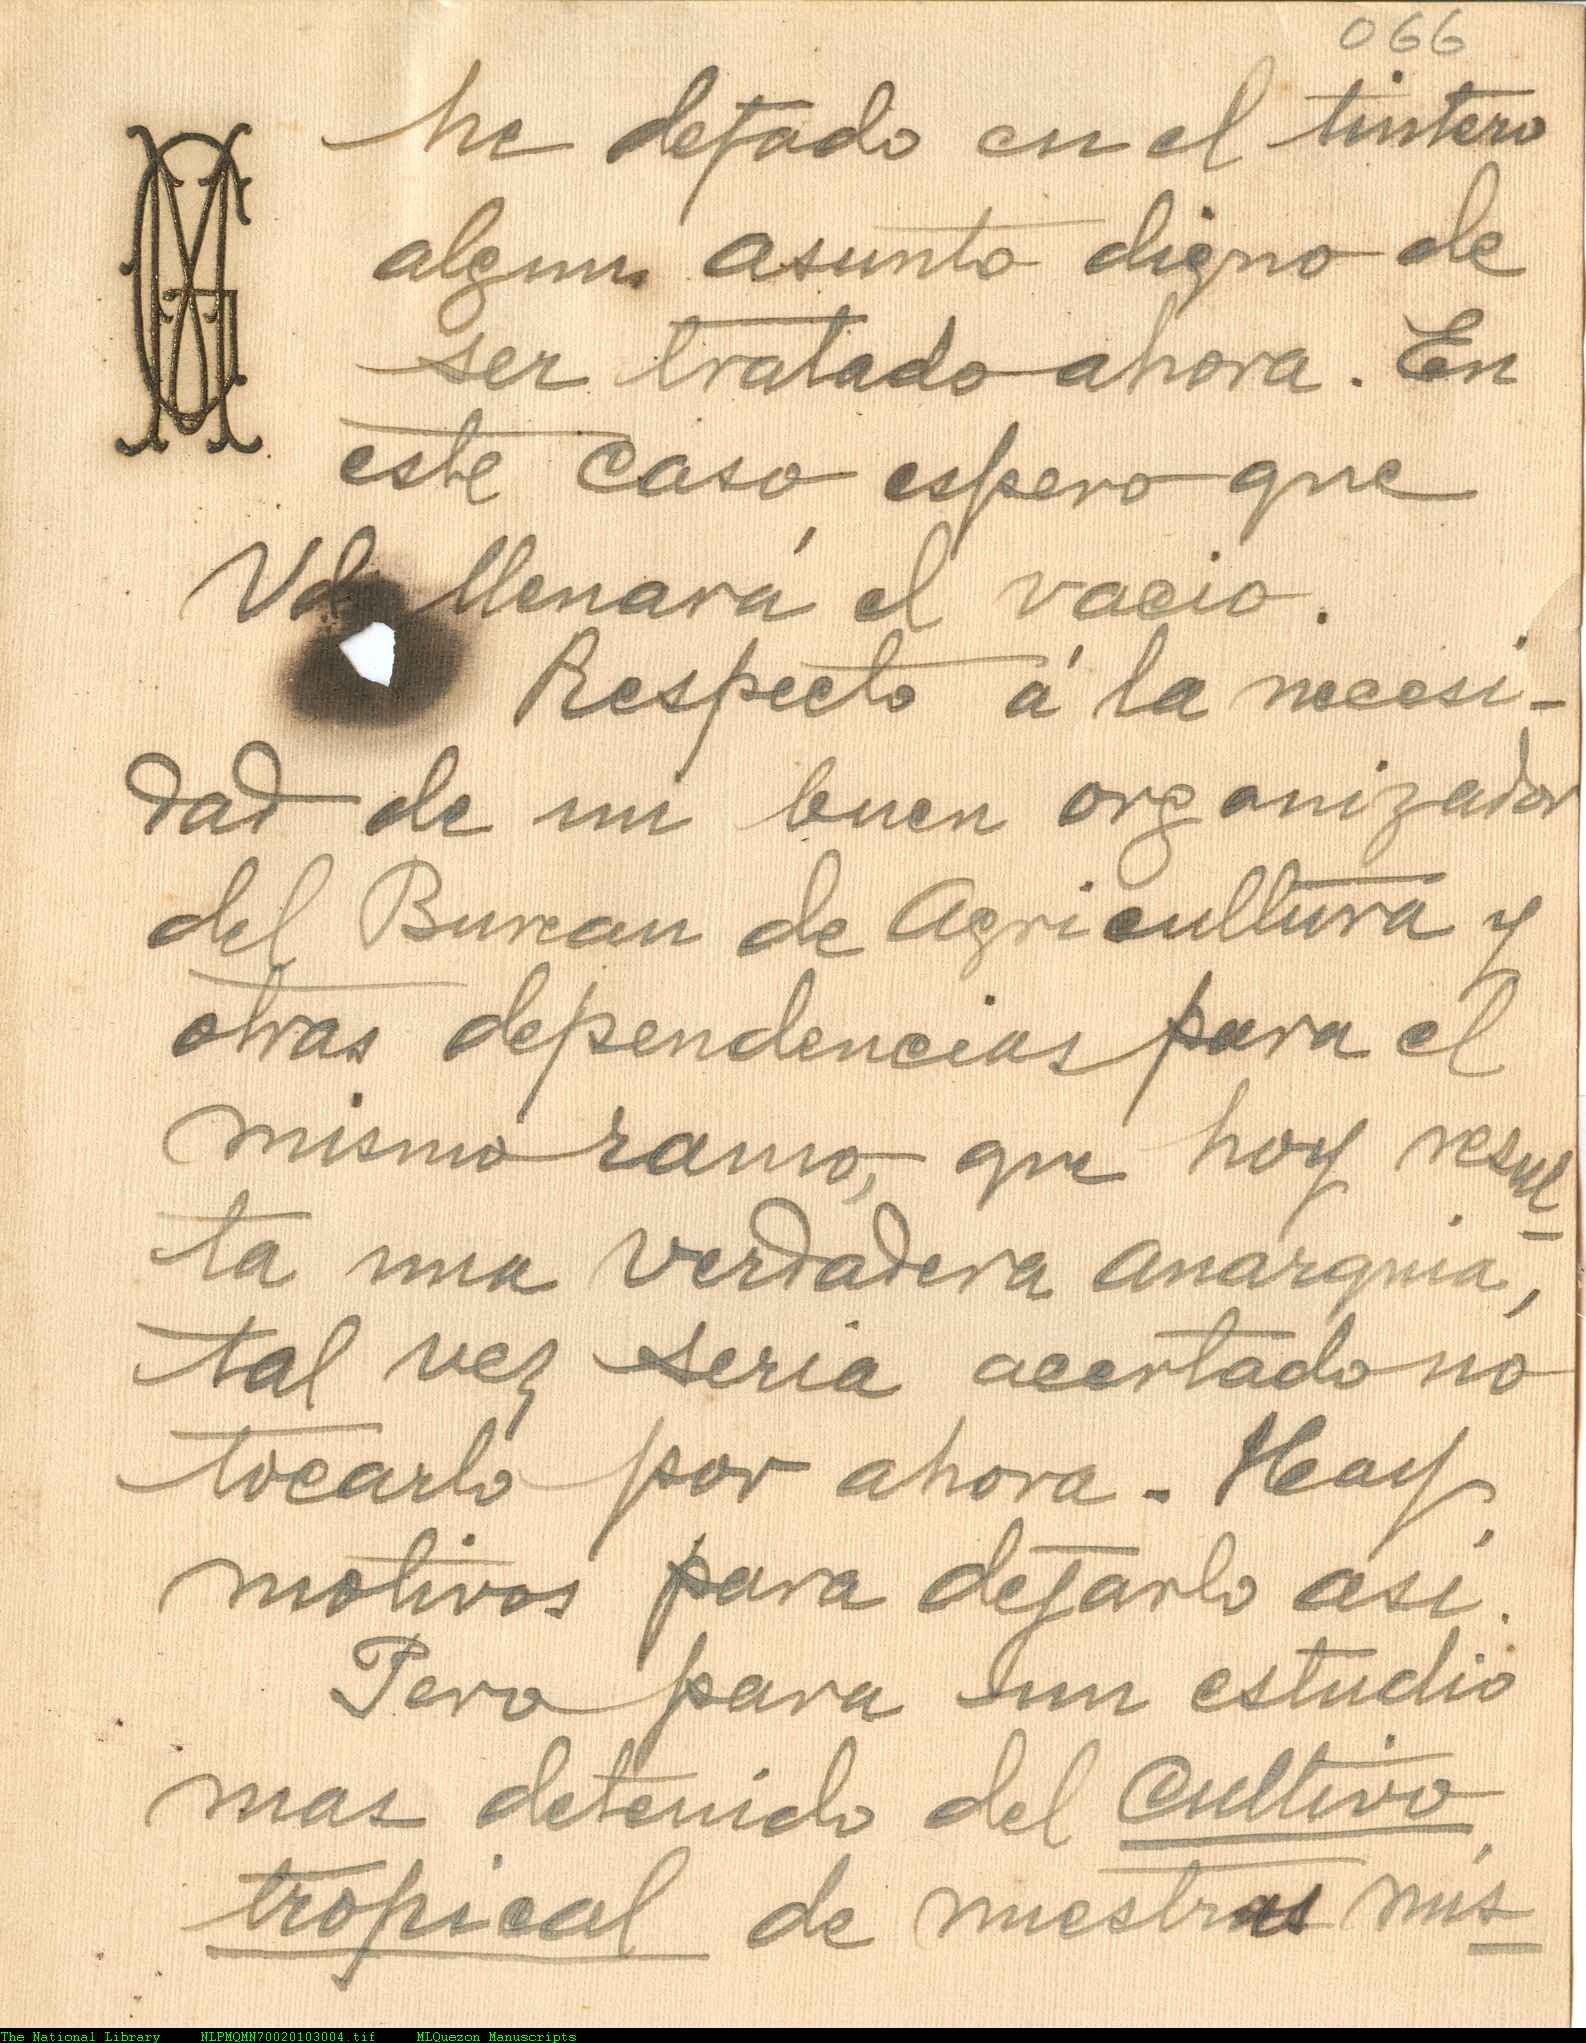 066
he dejado en el tintero
algun asunto digno de
ser tratado ahora. En
este caso, espero que
Vd. llenará el vacio.
Respecto á la necesi-
dad de un buen organizador
del Bureau de Agricultura y
otras dependencias para el
mismo ramo, que hoy resul-
ta una verdadera anarquia,
tal vez seria acertado no
tocarlo por ahora. Hay
motivos para dejarlo asi.
Pero para un estudio
mas detenido del cultivo
tropical de nuestras mis
The National Library NLPMQMN70020103004.tif MLQuezon Manuscripts